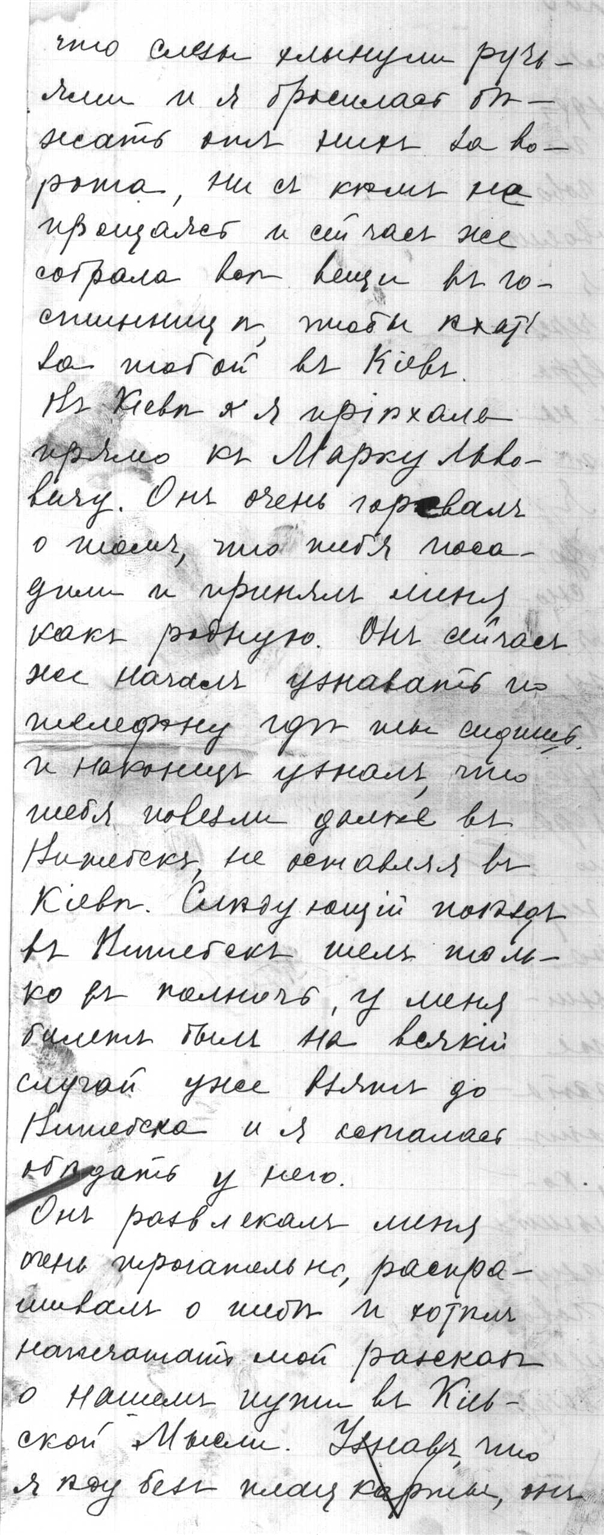 что слезы хлынули ручь-
ями и я бросилась бѣ-
жать отъ нихъ за во-
рота, ни съ кѣмъ не
прощаясь и сейчасъ же
собрала всѣ вещи въ го-
стинницѣ, чтобы ѣхать
за тобой въ Кіевъ.
Въ Кіевѣ я пріѣхала
прямо къ Марку Льво-
вичу. Онъ очень горевалъ
о томъ, что тебя поса-
дили и принялъ меня
какъ родную. Онъ сейчасъ
же началъ узнавать по
телефону гдѣ ты сидишь
и наконецъ узналъ, что
тебя повезли далѣе въ
Витебскъ, не оставляя въ
Кіевѣ. Слѣдующій поѣздъ
въ Витебскъ шелъ толь-
ко въ полночь, у меня
билетъ былъ на всякій
случай уже взятъ до
Витебска и я осталась
обѣдать у него.
Онъ развлекалъ меня
очень трогательно, распра-
шивалъ о тебѣ и хотѣлъ
напечатать мой разсказъ
о нашемъ пути въ Кіев-
ской Мысли. Узнавъ, что
я ѣду безъ плацкарты, онъ